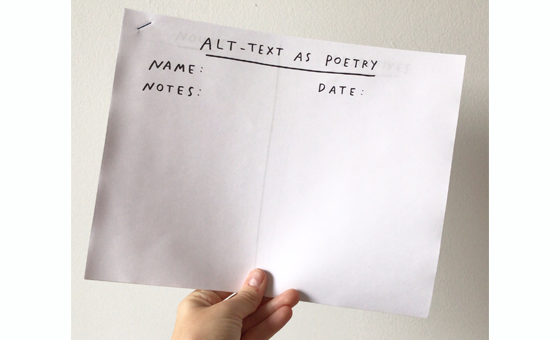 ALT-TEXT AS POETRY
NAME:
NOTES:
DATE: